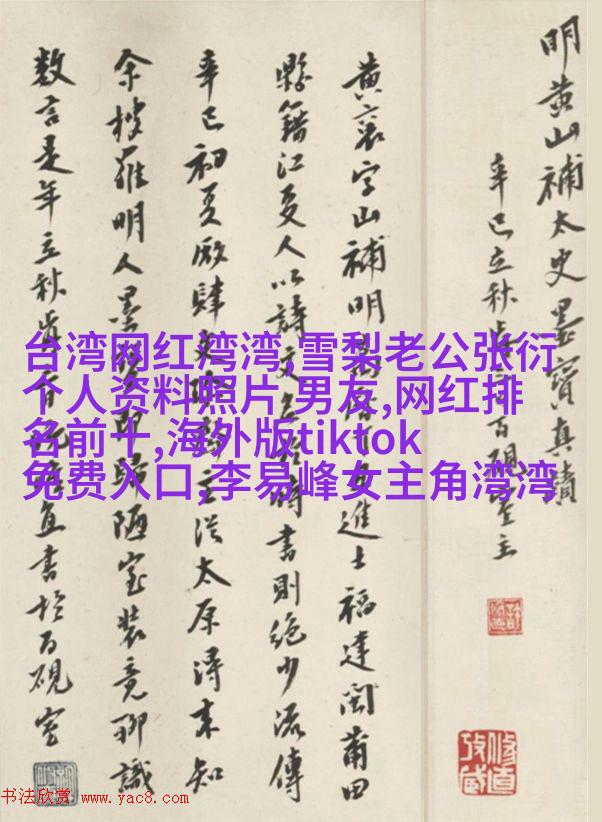 明黄山補太史墨寶真蹟
辛巳立秋 百硯室主
黄襄字山補明 進士福建閩莆田
縣籍江夏人以詩文 時書則絶少流傳
辛巳初夏廠肆 主從太原得来知
余搜羅明人墨 歸陋室装竟聊識
數言是年立秋 宜書於百硯室
台湾网红湾湾,雪梨老公张衍
个人资料照片,男友,网红排
名前十,海外版tiktok
免费入口,李易峰女主角湾湾
书法欣赏 www.yac8.com